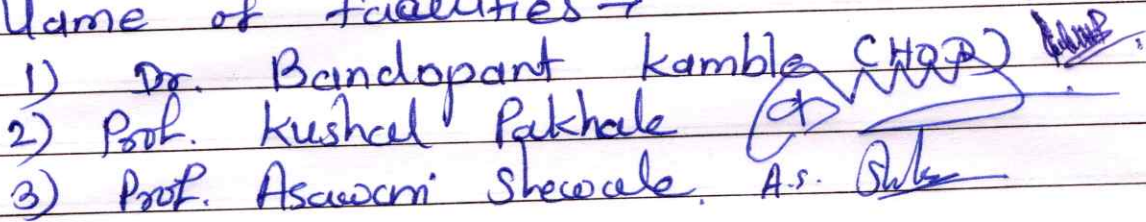 Name of faculties →
1) Dr. Bandopant Kamble (HOD)
2) Prof. Kushal Pakhale
3) Prof. Asawari Shewale. A.S.